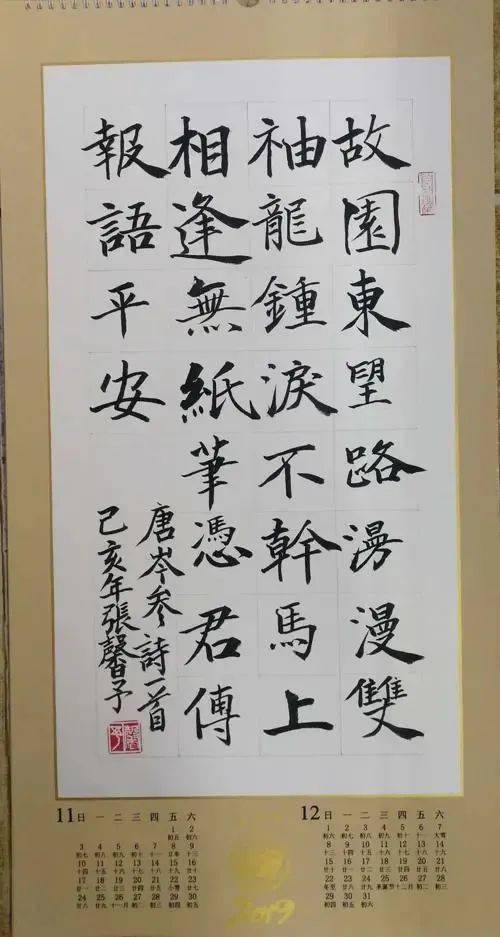 故園東望路漫漫雙
袖龍鍾淚不幹馬上
相逢無紙筆憑君傳
報語平安
唐岑參詩一首
己亥年張馨予
11 日 一 二 三 四 五 六
1 2
初五 初六
3 4 5 6 7 8 9
初七 初八 初九 初十 十一 立冬 十三
10 11 12 13 14 15 16
十四 十五 十六 十七 十八 十九 二十
17 18 19 20 21 22 23
廿一 廿二 廿三 廿四 廿五 小雪 廿七
24 25 26 27 28 29 30
廿八 廿九 十一月 初二 初三 初四 初五
12 日 一 二 三 四 五 六
1 2 3 4 5 6 7
初六 初七 初八 初九 初十 十一 大雪
8 9 10 11 12 13 14
十三 十四 十五 十六 十七 十八 十九
15 16 17 18 19 20 21
二十 廿一 廿二 廿三 廿四 廿五 廿六
22 23 24 25 26 27 28
冬至 廿八 廿九 圣诞节 十二月 初二 初三
29 30 31
初四 初五 初六
2019